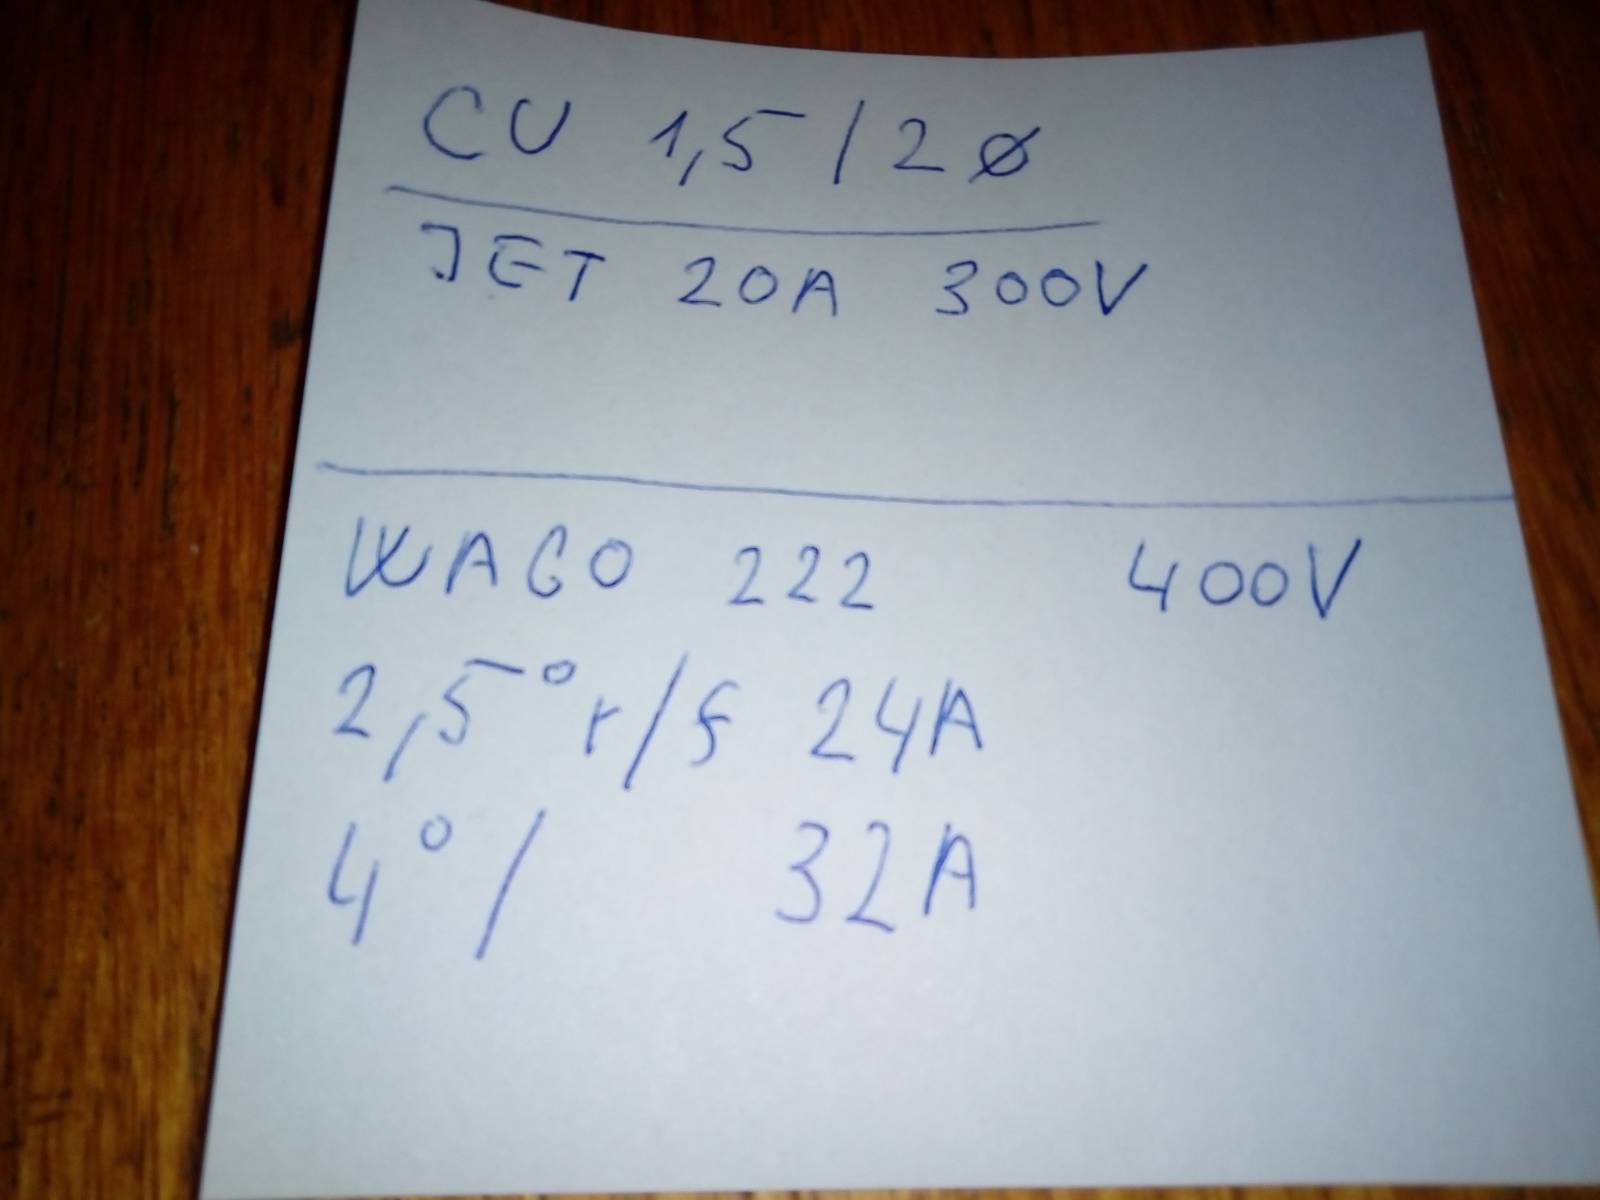 CU 1,5/2 ø
JET 20A 300V
WAGO 222 400V
2,5° r/f 24A
4°/ 32A